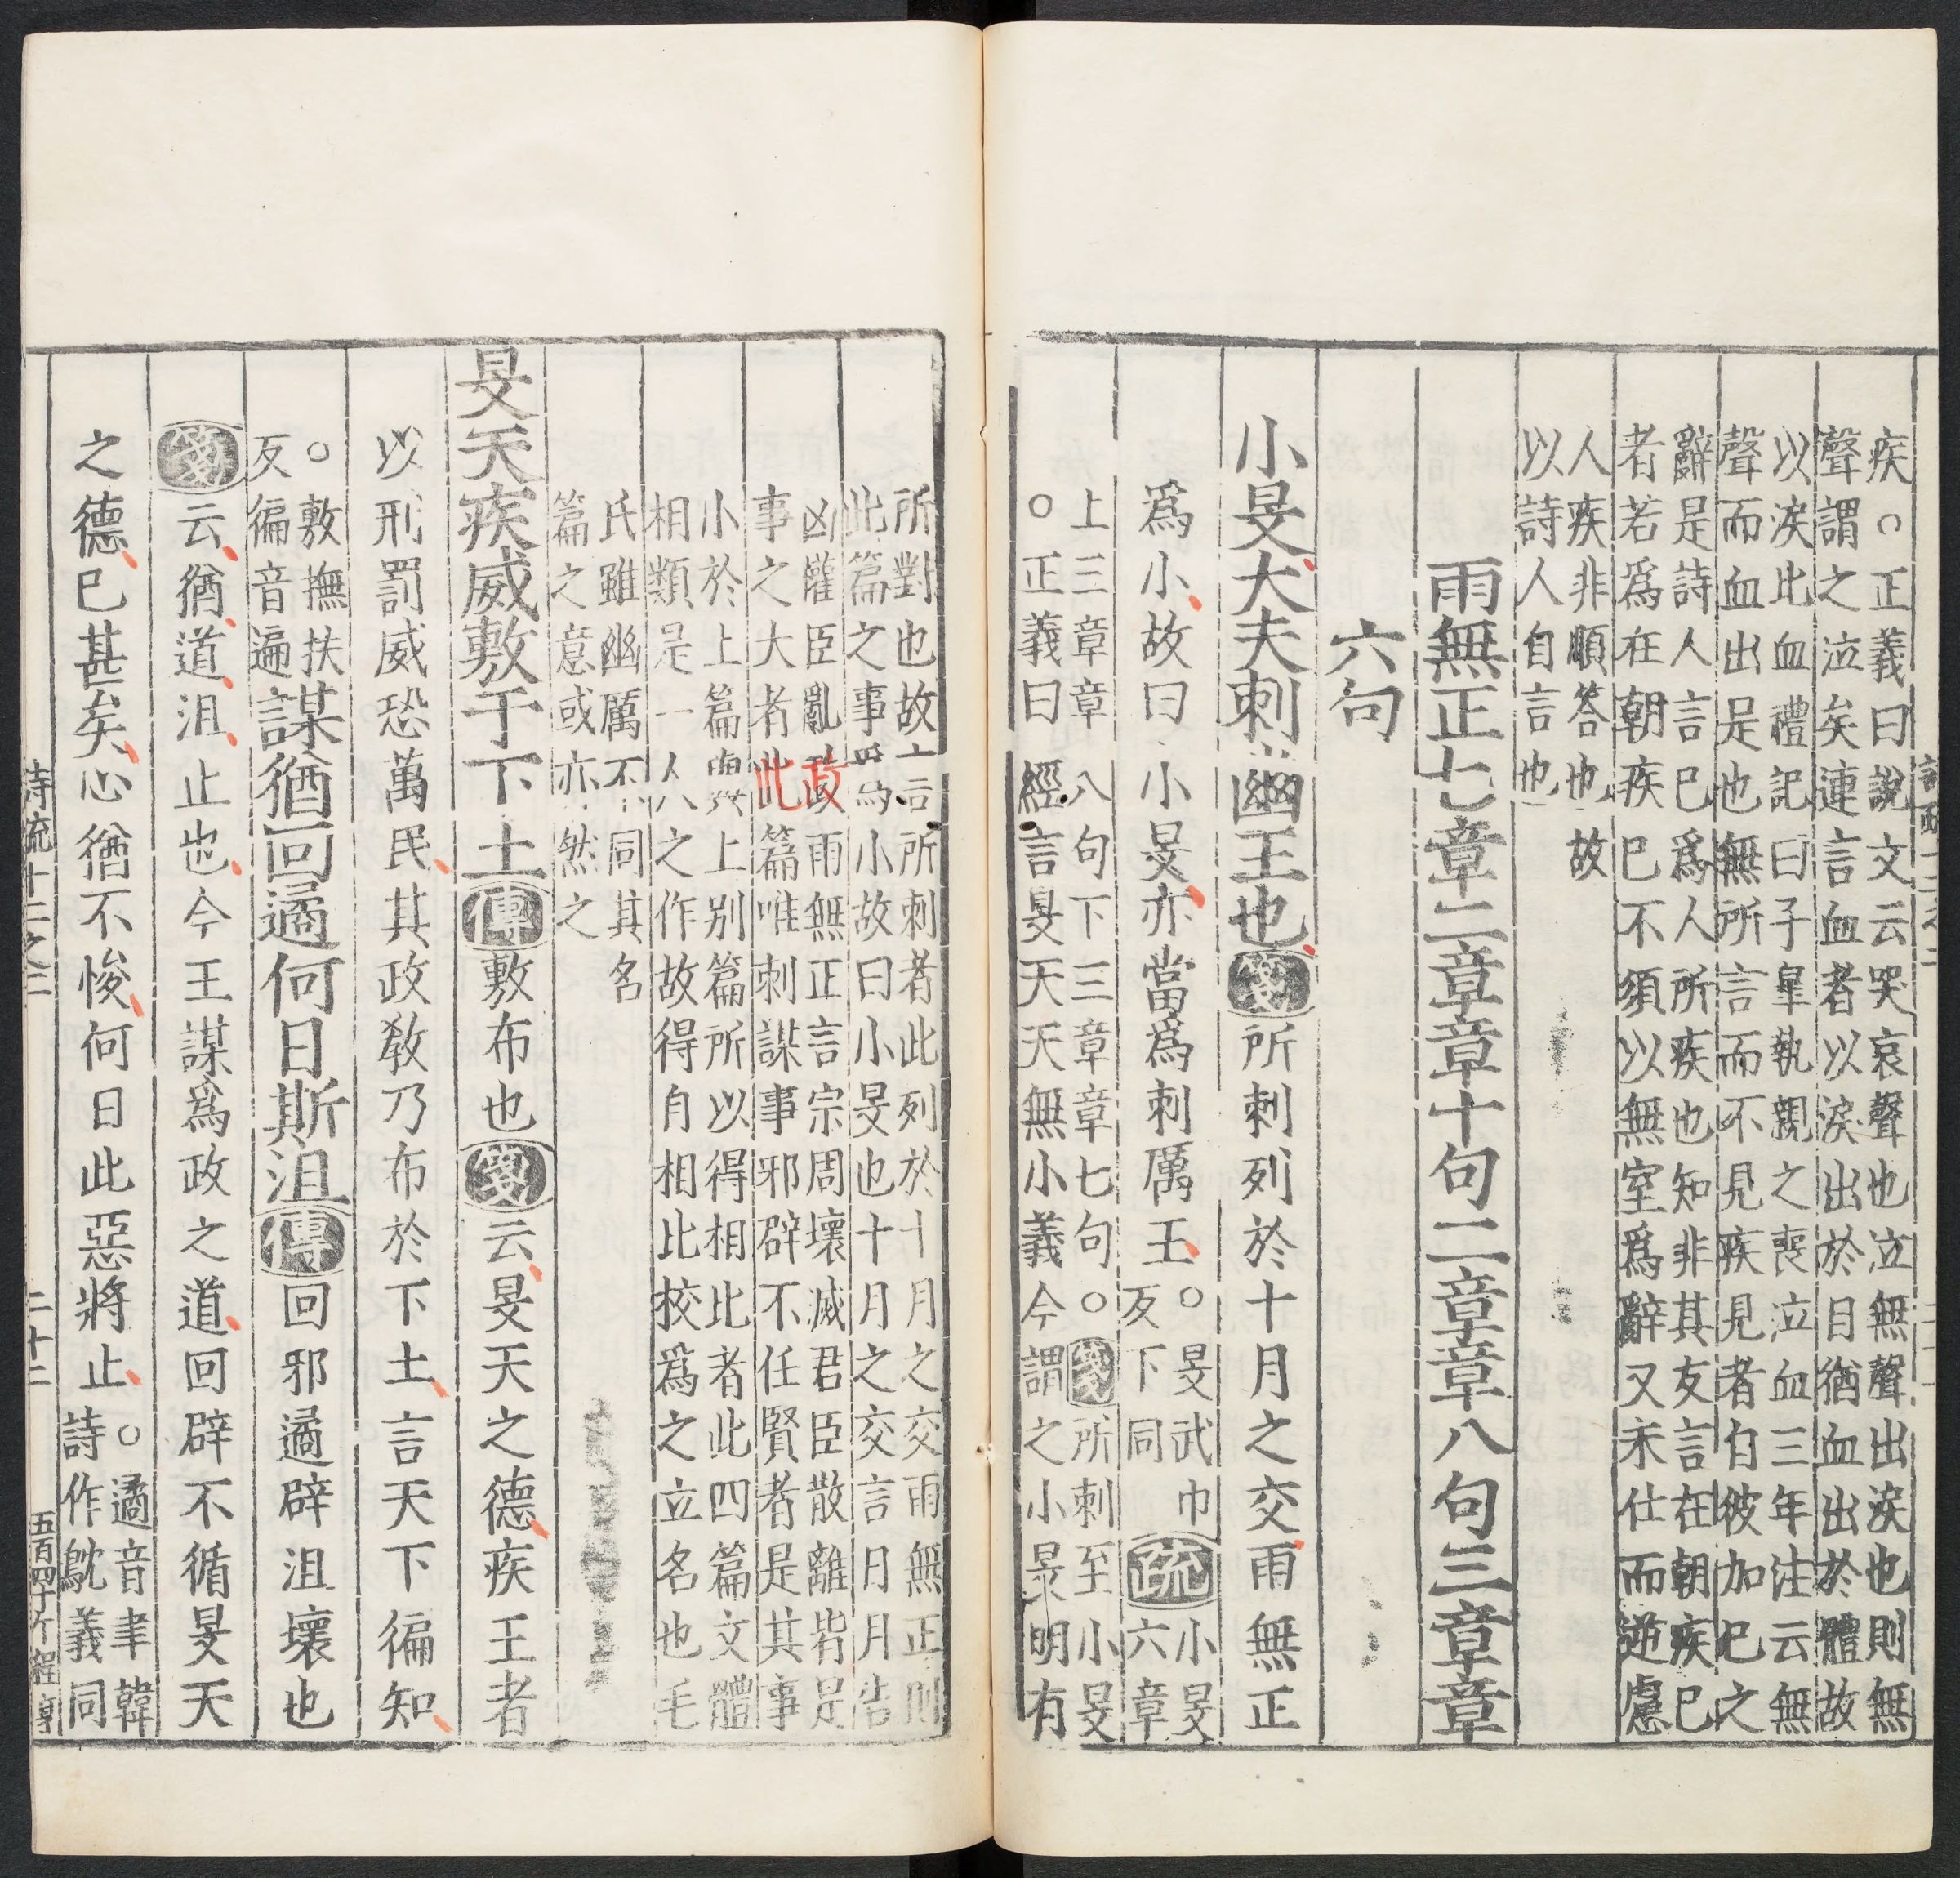 疾○正義曰說文云哭哀聲也泣無聲出淚也則無
聲謂之泣矣連言血者以淚出於目猶血出於體故
以淚此血禮記曰子臯執親之喪泣血三年注云無
聲而血出是也無所言而不見疾見者自彼加己之
辭是詩人言已爲人所疾也知非其友言在朝疾已
者若爲在朝疾已不須以無室爲辭又未仕而逆慮
人疾非順答也故
以詩人自言也
雨無正七章二章章十句二章章八句三章章
六句
小旻大夫刺幽王也箋所刺列於十月之交雨無正
爲小故曰小旻亦當爲刺厲王○旻武巾
反下同疏小旻六章
上三章章八句下三章章七句○箋所刺至小旻
○正義曰經言旻天天無小義今謂之小旻明有
所對也故言所刺者此列於十月之交雨無正則
此篇之事爲小故曰小旻也十月之交言月月告
凶權臣亂政雨無正言宗周壞滅君臣散離皆是
事之大者此篇唯刺謀事邪辟不任賢者是其事
小於上篇與上別篇所以得相比者此四篇文體
相類是一人之作故得自相比校爲之立名也毛
氏雖幽厲不同其名
篇之意或亦然之
旻天疾威敷于下土傳敷布也箋云旻天之德疾王者
以刑罰威恐萬民其政教乃布於下土言天下徧知
○敷撫扶
反徧音遍謀猶回遹何日斯沮傳回邪遹辟沮壞也
箋云猶道沮止也今王謀爲政之道回辟不循旻天
之德已甚矣心猶不悛何日此惡將止○遹音聿韓
詩作鴥義同
詩疏十二之二
二十二